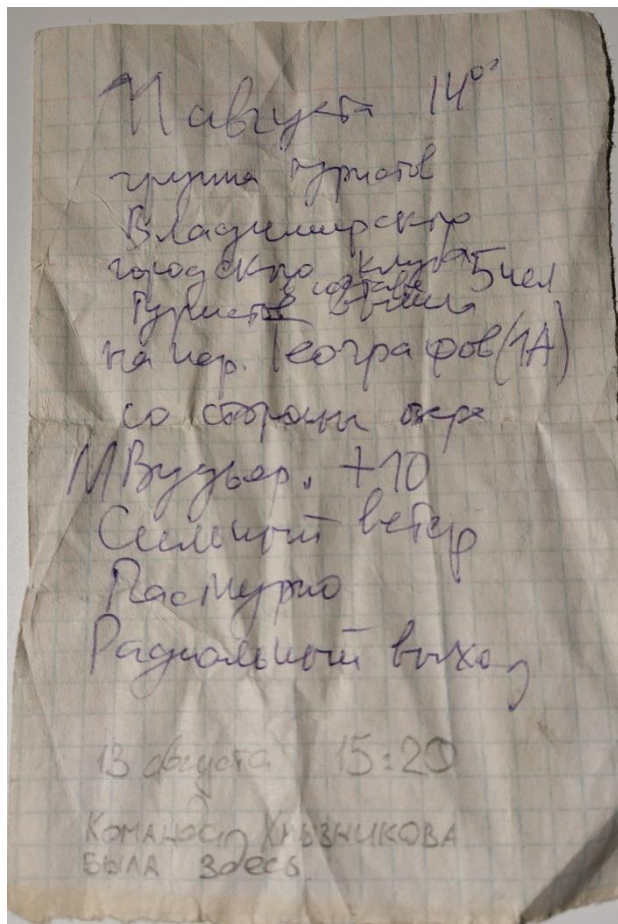 11 августа 14⁰⁰
группа туристов
Владимирского
городского клуба
туристов в составе 5 чел
вышла
на пер. Географов (1А)
со стороны озера
М Вудъяр. +10
Сильный ветер
Пасмурно
Радиальный выход
13 августа 15:20
Команда Хмызникова
была здесь